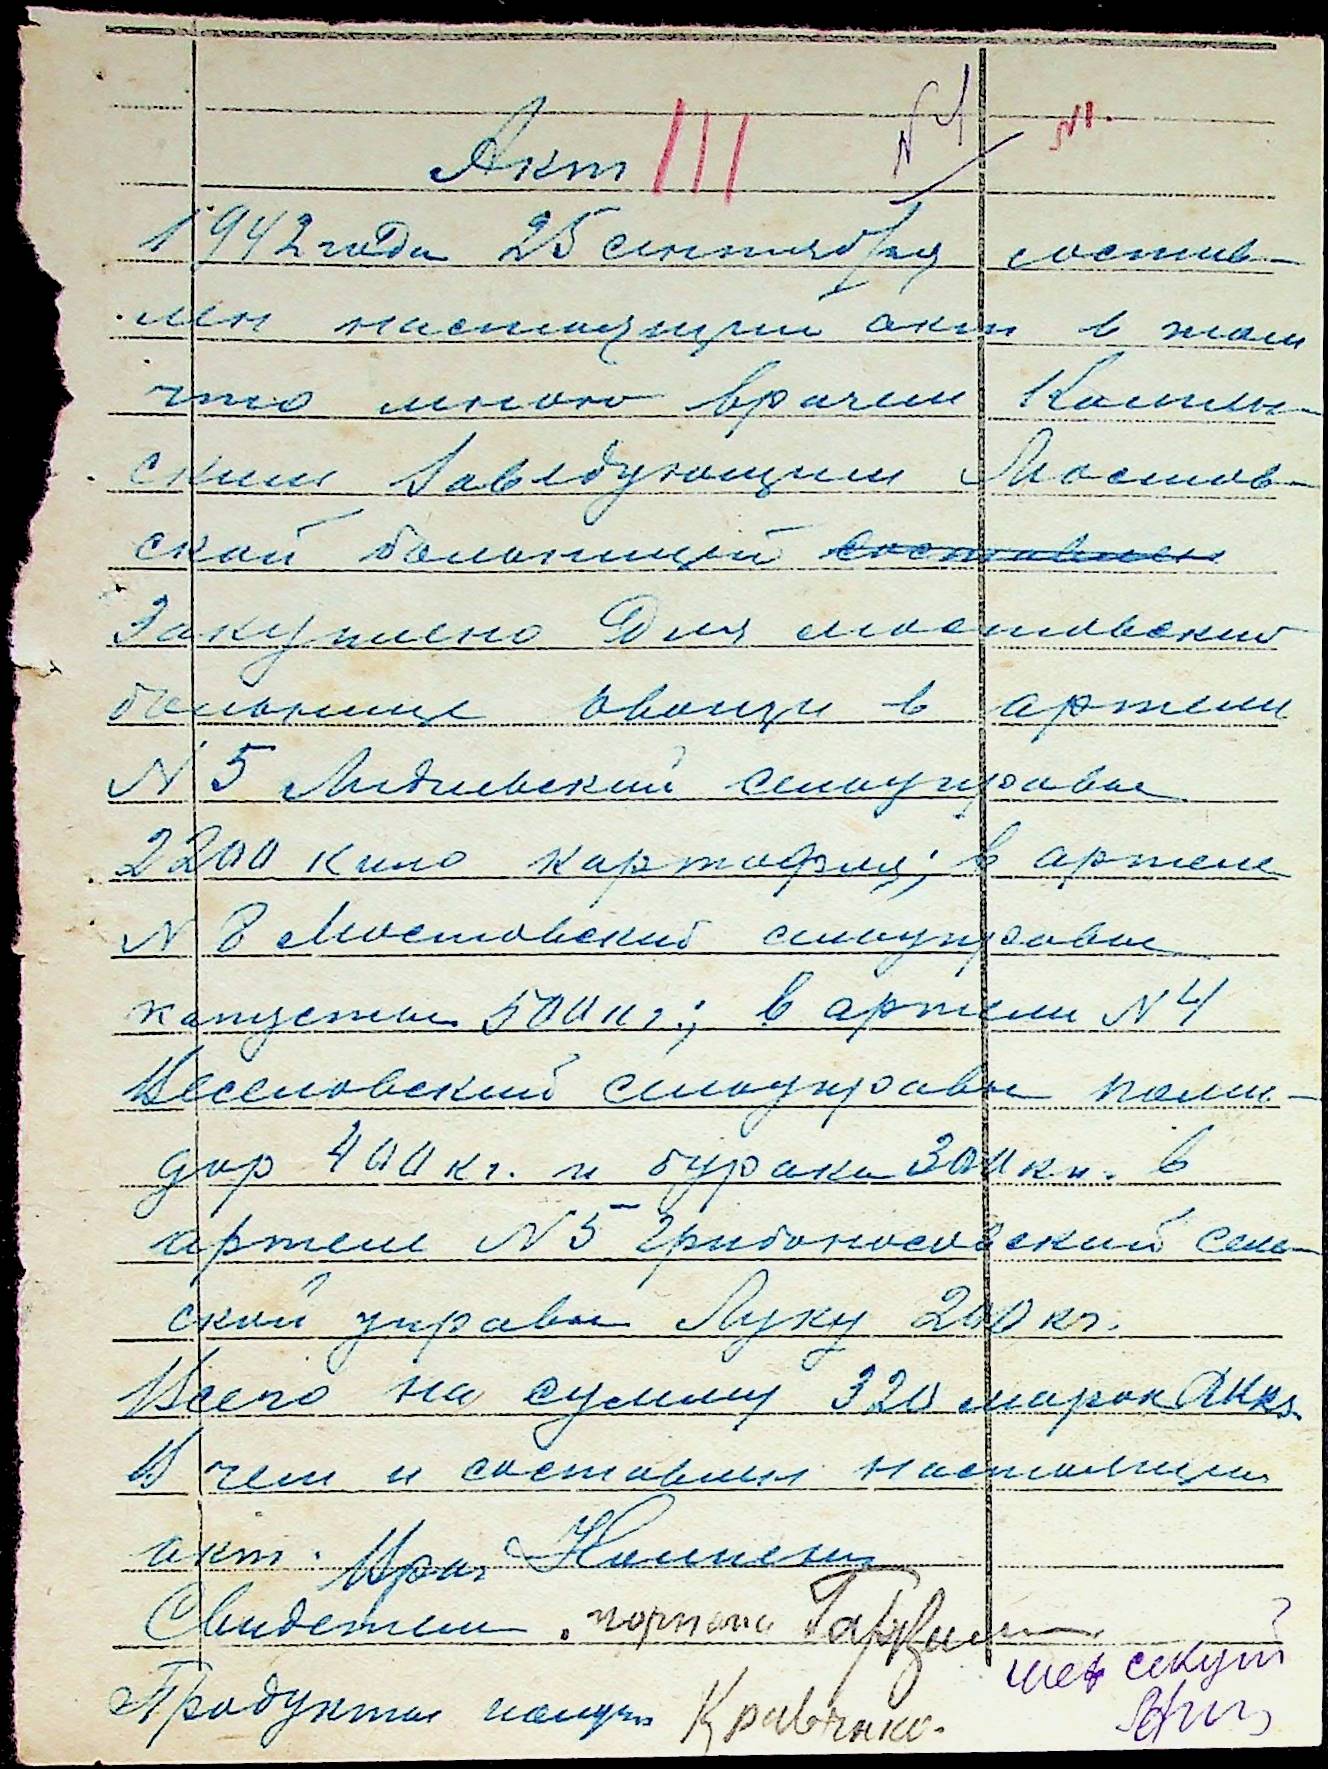 Акт III №1 №1.
1942 года 25 сентября состав-
лен настоящии акт в том
что мною врачем
ским Заведующим Мостов-
ской больницой составлен
Закуплено Для мостовский
больнице овощи в артели
N 5 селоуправы
2200 кило картофля; в артели
N 8 Мостовский селоуправы
капусты 500 кг; в артели N 4
Веселовский селоуправы поми-
дор 400 кг. и бурака 300 кг. в
артели N 5 Грибоносовский сель
ской управы Луку 200 кг.
Всего на сумму 320 марок
В чем и составлен настоящии
акт. Врач
Свидетели
Продукты получ. Кравченко.